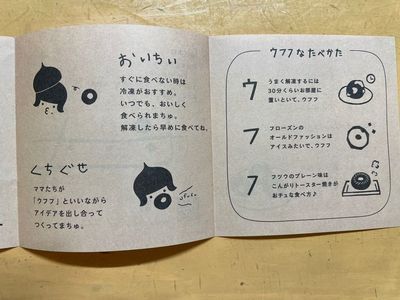 おいちい
すぐに食べない時は
冷凍がおすすめ。
いつでも、おいしく
食べられまちゅ。
解凍したら早めに食べてね。
くちぐせ
ママたちが
「ウフフ」といいながら
アイデアを出し合って
つくってまちゅ。
ウフフなたべかた
ウ
うまく解凍するには
30分くらいお部屋に
置いといて、ウフフ
フ
フローズンの
オールドファッションは
アイスみたいで、ウフフ
フ
フツウのプレーン味は
こんがりトースター焼きが
おチュな食べ方♪